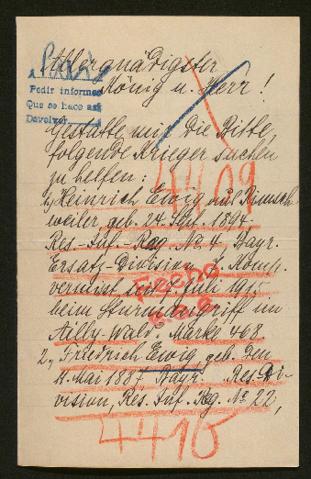 Allergnädigster
König u. Herr!
Pedir informes
Que se hace así
Devolver
Gestatte mir die Bitte,
folgende Krieger suchen
zu helfen:
4409
1, Heinrich Ewig aus
weiler, geb. 24. Sept. 1894.
Res.-Inf.-Reg. No. 4 Bayr.
Ersatz-Division, 7. Komp.
vermisst am 7. Juli 1915
Hecho
beim Sturmangriff im
Ailly-Wald. Marke 468.
2, Friedrich Ewig, geb. den
4. Mai 1887 Bayr. Res. Di-
vision, Res. Inf. Reg. No 22,
4410